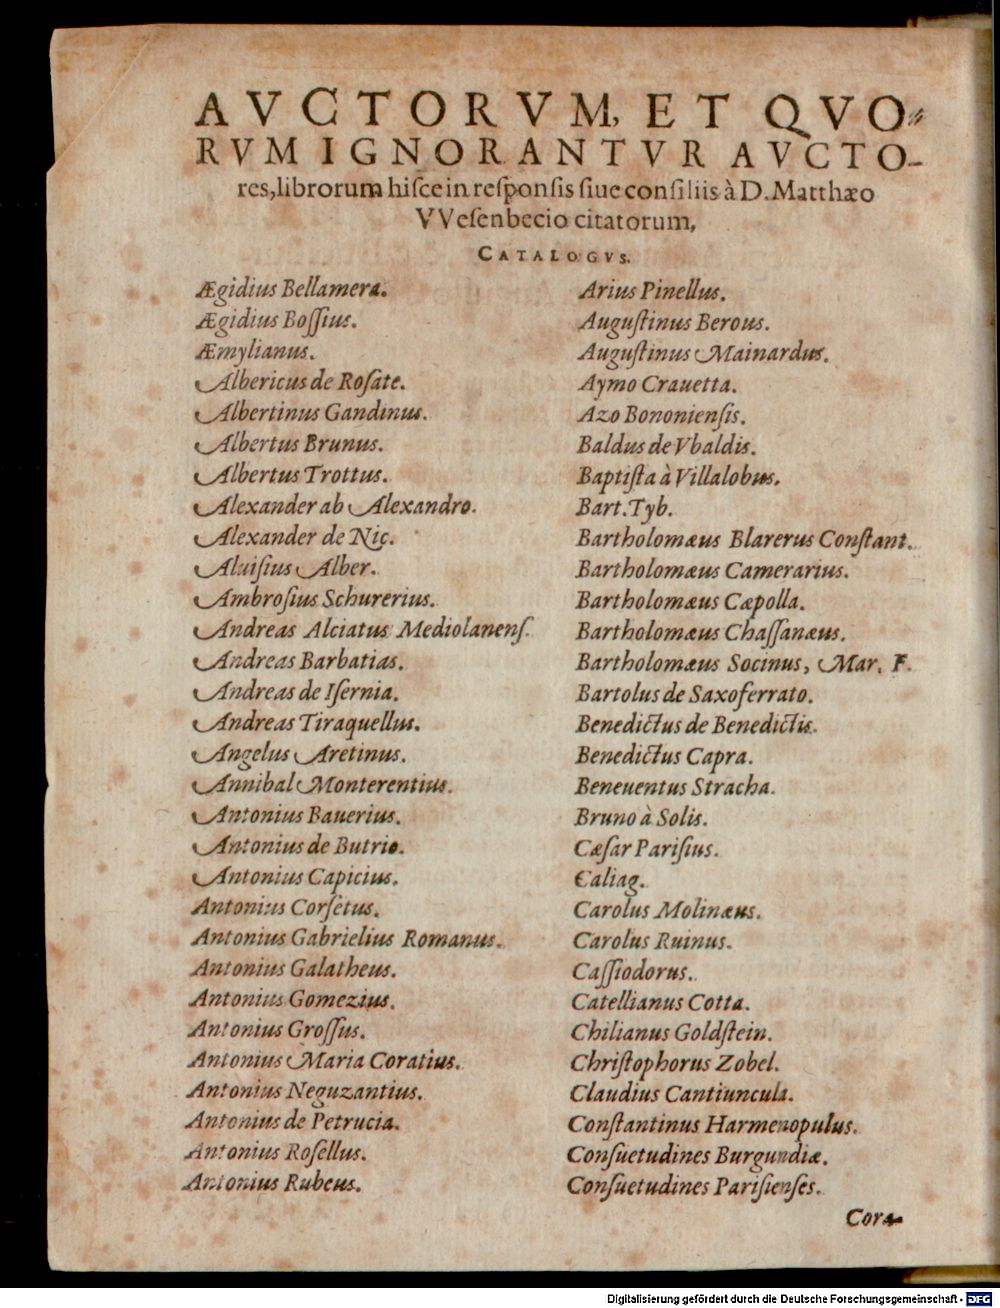 AVCTORVM, ET QVO-
RVM IGNORANTVR AVCTO-
res, librorum hiſce in reſponſis ſiue conſiliis à D. Matthæo
VVeſenbecio citatorum,
CATALOGVS.
Ægidius Bellamera.
Ægidius Boſſius.
Æmylianus.
Albericus de Roſate.
Albertinus Gandinus.
Albertus Brunus.
Albertus Trottus.
Alexander ab Alexandro.
Alexander de Nic.
Aluiſius Alber.
Ambroſius Schurerius.
Andreas Alciatus Mediolanenſ.
Andreas Barbatias.
Andreas de Iſernia.
Andreas Tiraquellus.
Angelus Aretinus.
Annibal Monterentius.
Antonius Bauerius.
Antonius de Butrio.
Antonius Capicius.
Antonius Corſetus.
Antonius Gabrielius Romanus.
Antonius Galatheus.
Antonius Gomezius.
Antonius Groſſus.
Antonius Maria Coratius.
Antonius Neguzantius.
Antonius de Petrucia.
Antonius Roſellus.
Antonius Rubeus.
Arius Pinellus.
Auguſtinus Berous.
Auguſtinus Mainardus.
Aymo Crauetta.
Azo Bononienſis.
Baldus de Vbaldis.
Baptiſta à Villalobus.
Bart. Tyb.
Bartholomæus Blarerus Conſtant.
Bartholomæus Camerarius.
Bartholomæus Cæpolla.
Bartholomæus Chaſſanæus.
Bartholomæus Socinus, Mar. F.
Bartolus de Saxoferrato.
Benedictus de Benedictis.
Benedictus Capra.
Beneuentus Stracha.
Bruno à Solis.
Cæſar Pariſius.
Caliag.
Carolus Molinæus.
Carolus Ruinus.
Caſſiodorus.
Catellianus Cotta.
Chilianus Goldſtein.
Chriſtophorus Zobel.
Claudius Cantiuncula.
Conſtantinus Harmenopulus.
Conſuetudines Burgundiæ.
Conſuetudines Pariſienſes.
Cora-
Digitalisierung gefördert durch die Deutsche Forschungsgemeinschaft - DFG